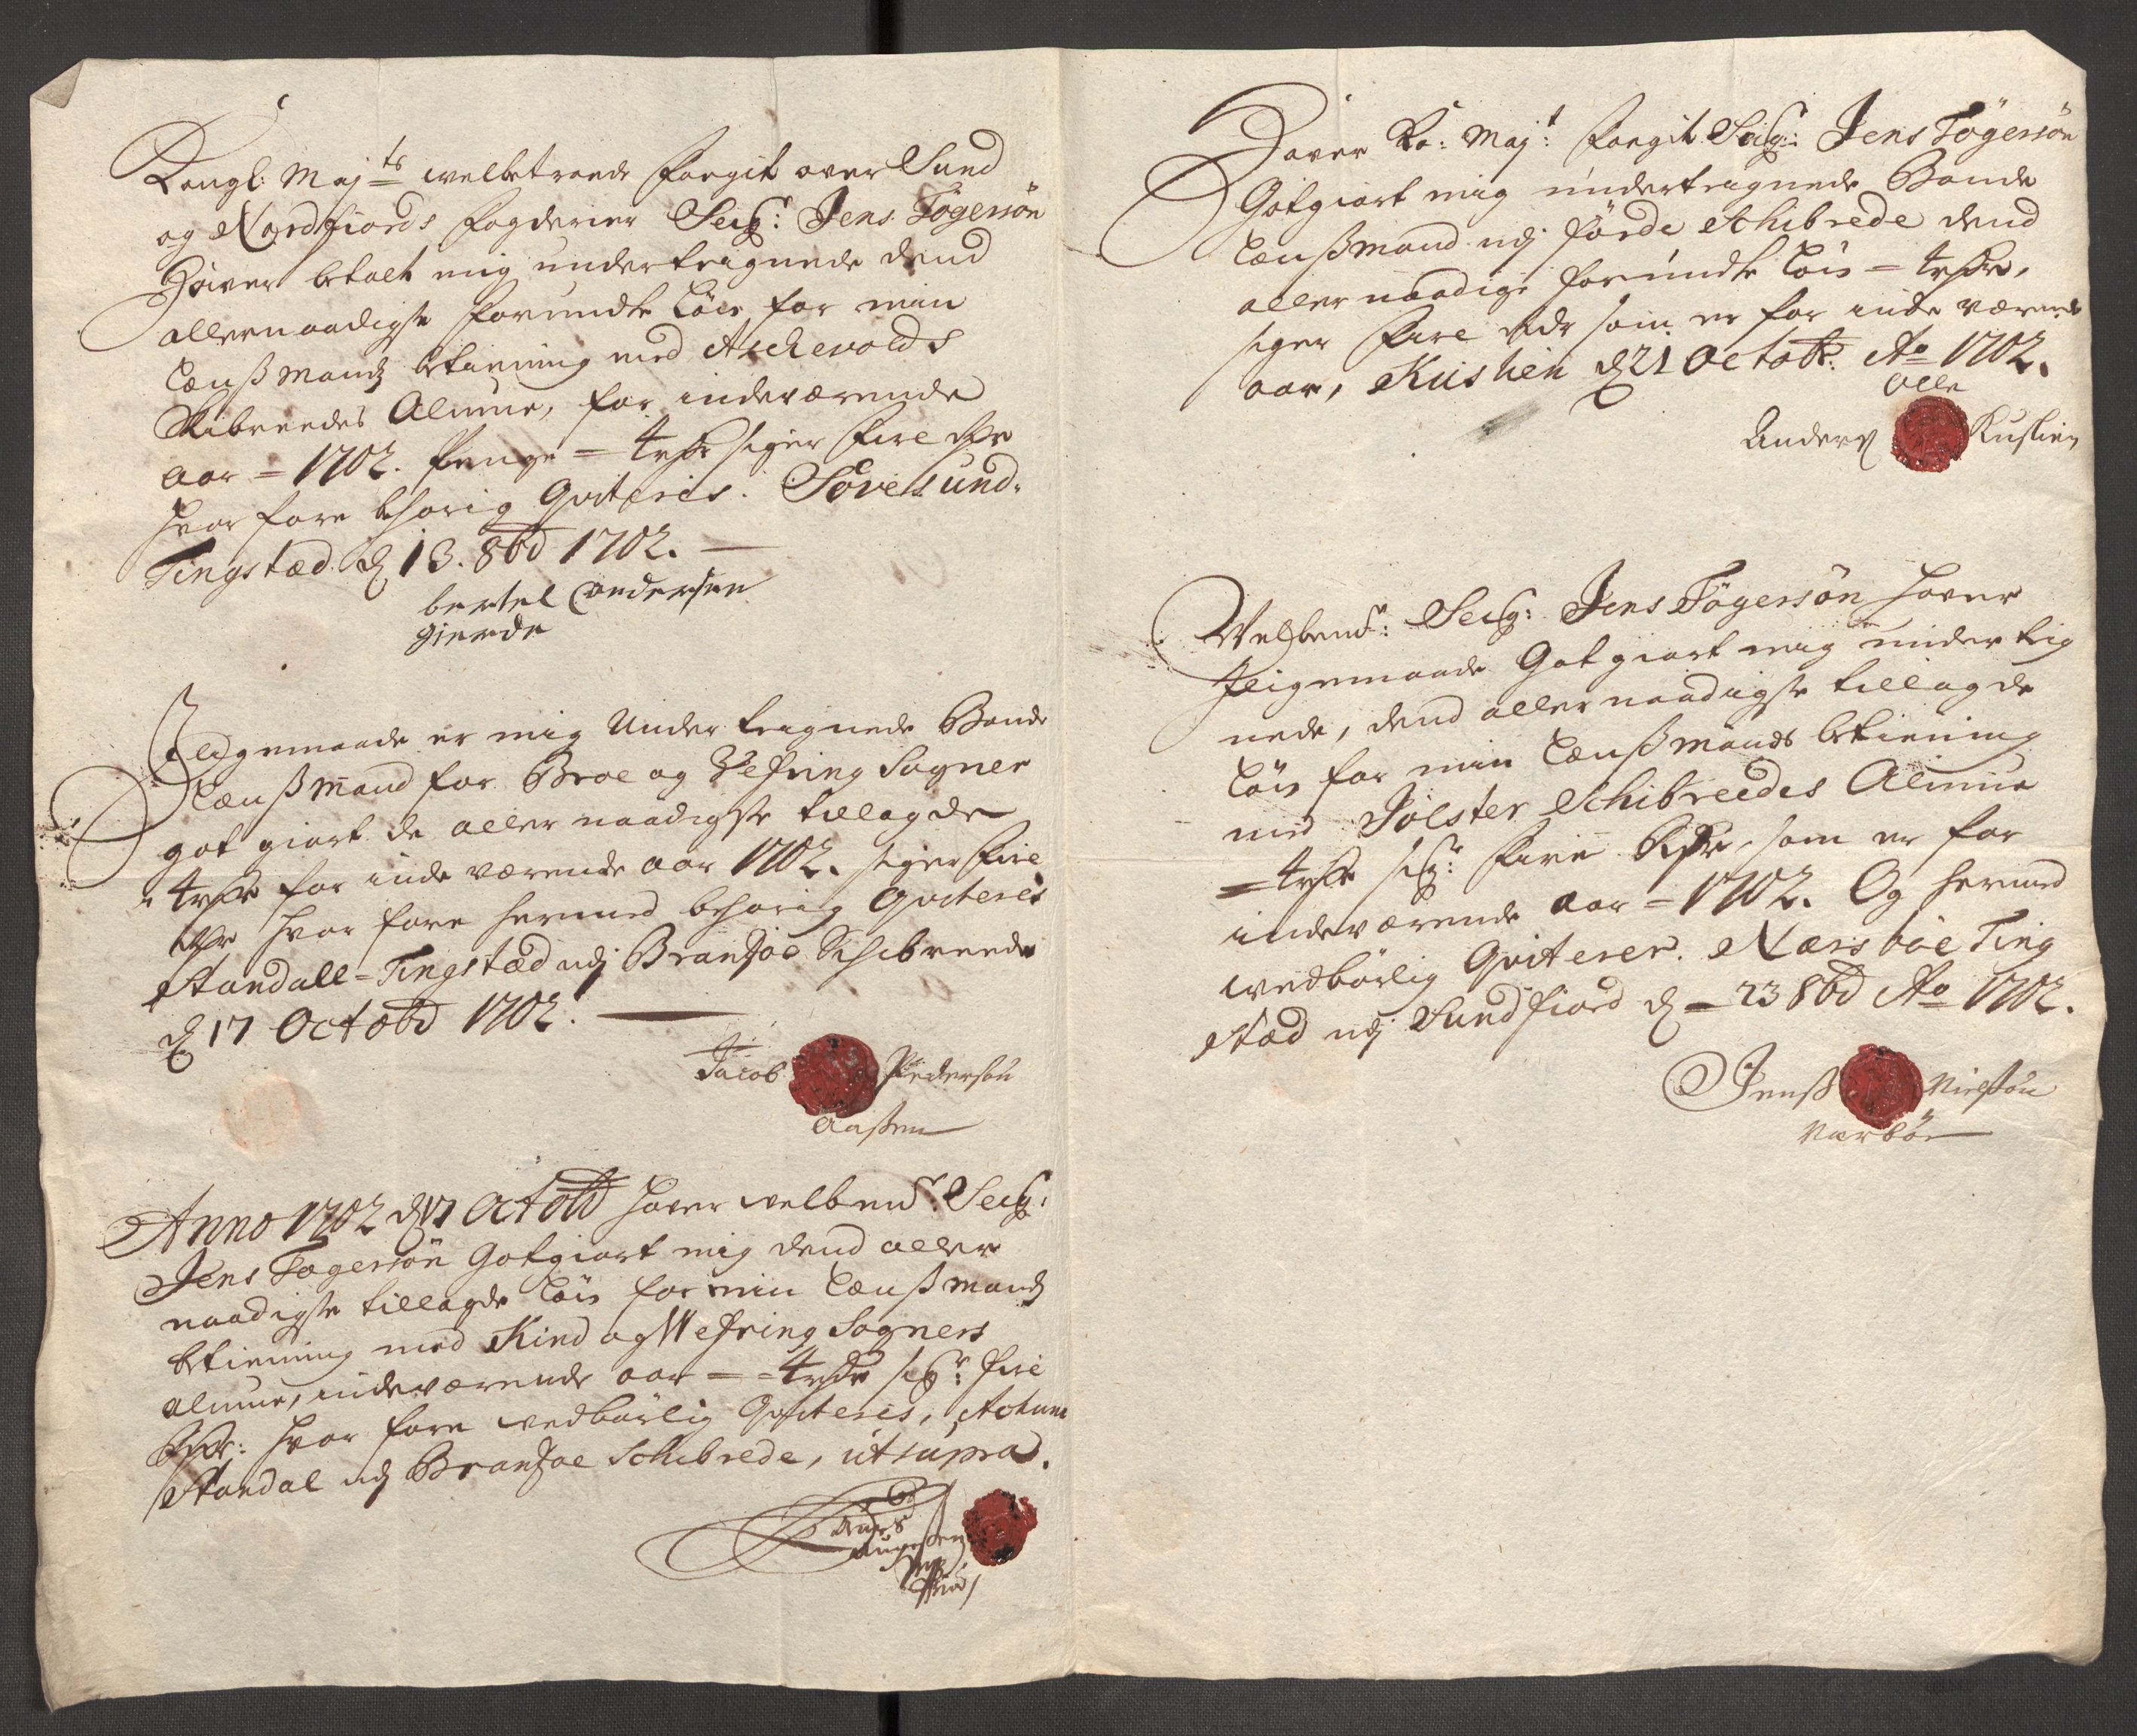 Kongl: Maj:ts welbetroede Foegit over Sund
og Nordfiords Fogderier Seig:r Jens Tøgersøn
Haver betalt mig undertegnede dend
allernaadigste Forundte Løn for min
Lensmands betiening med Aschevolds
Skibreedes Almue, for indeværende
aar = 1702. Penge = 4 rdr siger Fire rdr
hvor fore behørig Qviteris. Sövelsund-
Tingstæd d 13. 8bd 1702.
bertel andersen
gierde
Iligemaade er mig Under tegnede Bonde
Lensmand for Broe og Vefring Sogner
got giort de aller naadigste tillagde
4 rdr for inde værende aar 1702. siger Fire
rdr hvor fore hermed behørig Qviteris
Standall = Tingstæd udj Bransøe Schibreede
d 17 Octobd 1702.
Jacob Pedersøn
Aaßen
Anno 1702 d 17 Octobd haver welbem:te Seig:r
Jens Tøgersøn Gotgiort mig dend aller
naadigste tillagde Løn for min Lensmands
betiening med Kind og Wefring Sogners
almue, indeværende aar = 4 rdr sig:r fire
Rdr: hvor fore vedbørlig Qviteris, Actum
Standal udj Bransøe Schibrede, ut supra.
Anders
Haver Ko: Maj:t Foegit Seig:r Jens Tøgersøn
Gotgiort mig undertegnede Bonde
Lensmand udj Førde Schibrede dend
allernaadigst forundte Løn = 4 rdr,
siger Fire rdr som er for inde værende
aar, Kusslien d 21 Octobr: Ao 1702.
Olle
Anders Kuslien
Welbem:te Seig:r Jens Tøgersøn haver
Iligemaade Gotgiort mig underteig
nede, dend allernaadigste tillagde
Løn for min Lensmands betiening
med Jølster Schibreedes Almue
= 4 rdr sig:r Fire Rdr, som er for
indeværende aar = 1702. Og hermed
wedbørlig Qviterer. Nærsbøe Ting
stæd udj Sundfiord d = 23 8bd Ao 1702.
Jenß Nielsøn
Nærbøe